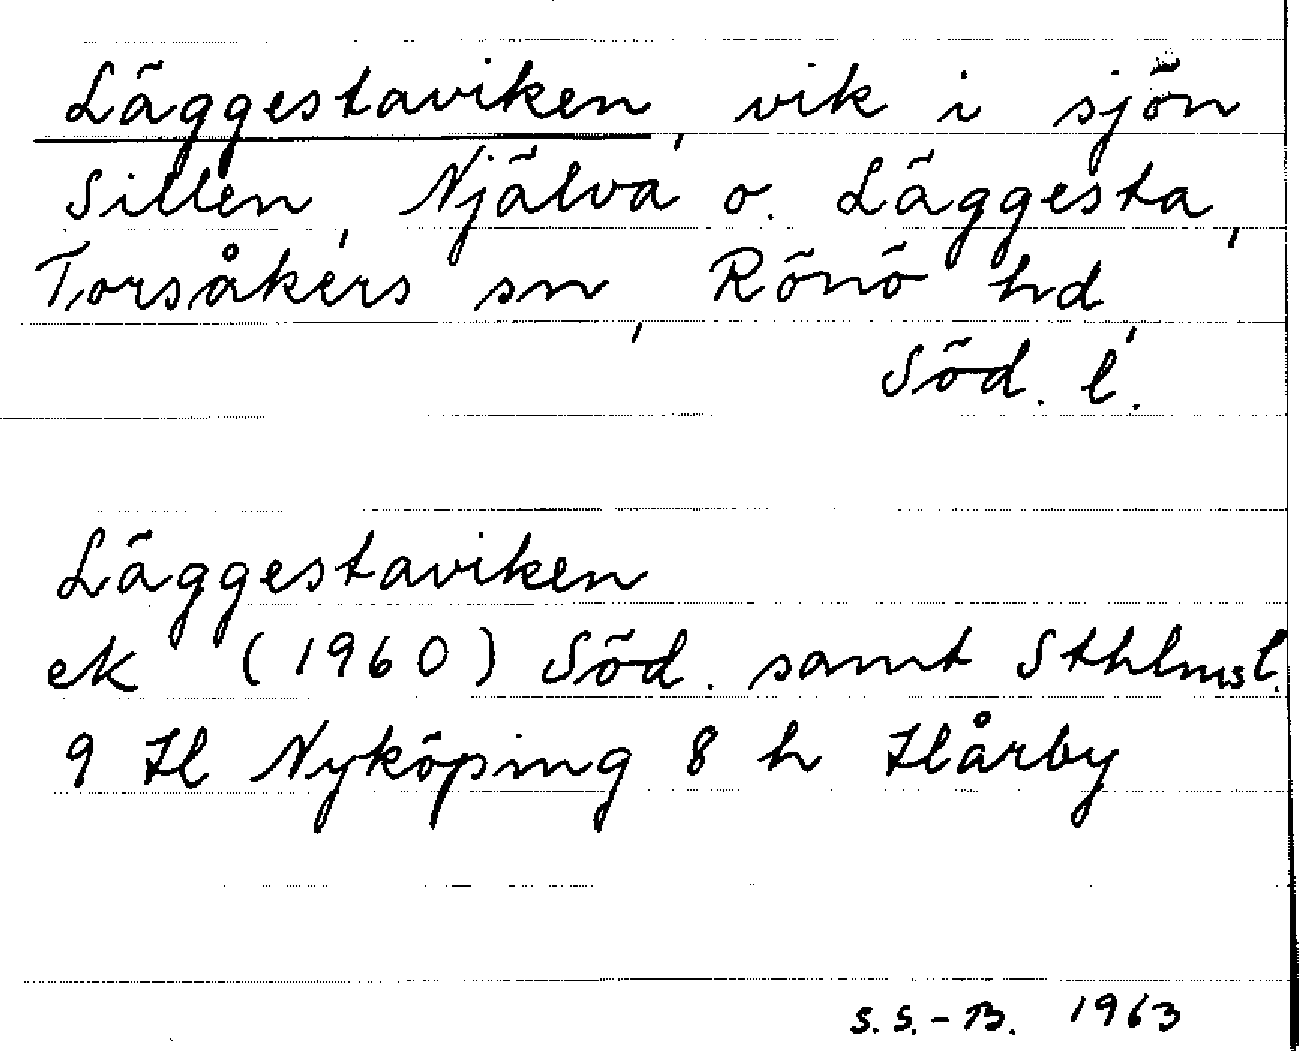 Läggestaviken, vik i sjön
Sillen, Njälva o. Läggesta,
Torsåkers sn, Rönö hd,
Söd. l.
Läggestaviken
ek (1960) Söd. samt Sthlms l.
9 H Nyköping 8 h Hårby
S.S.-B. 1963